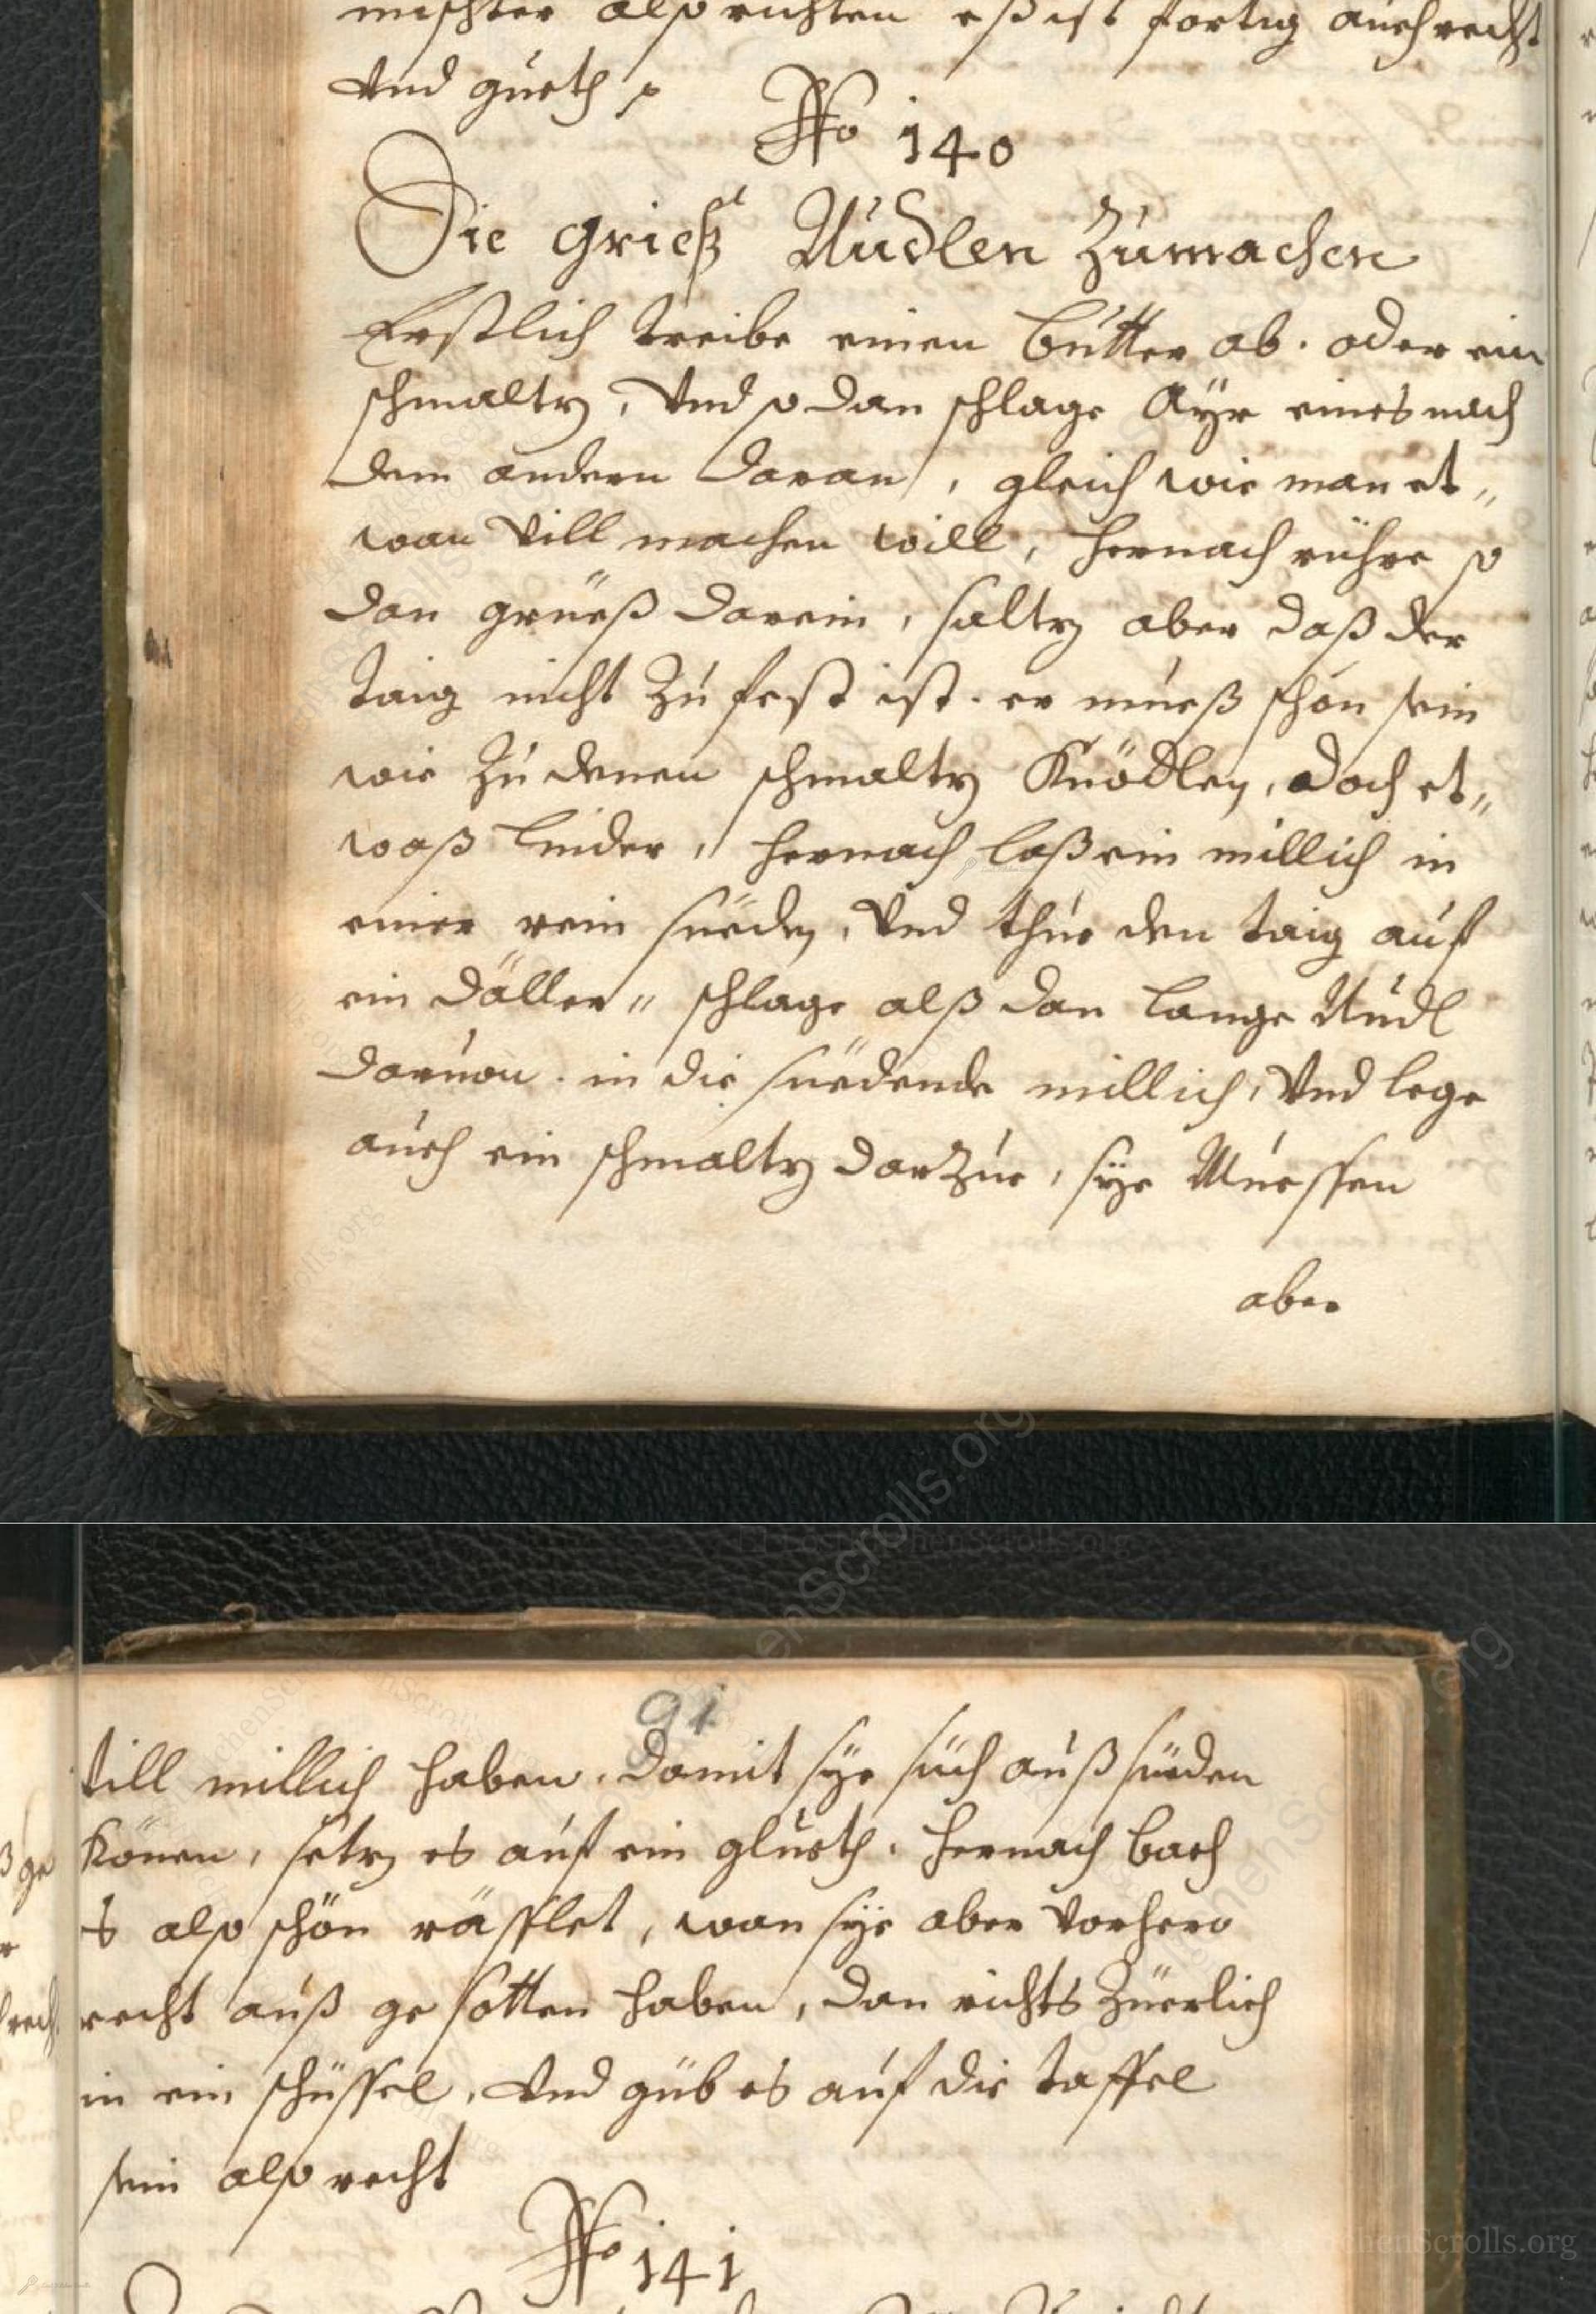 mischter also richten eß ist fertig auch recht
Vnd gueth
No 140
Die Grießl Nudlen Zumachen
Erstlich treibe einen butter ab. oder ein
schmaltz, Vnd so dan schlage Ayr eines nach
dem andern daran, gleich wie man et„
wan Vill machen will, hernach rühre so
dan grüeß darein, saltz aber daß der
taig nicht Zu fest ist. er mueß schon sein
wie Zu denen schmaltz Knödlen, doch et„
waß linder, hernach laß ein millich in
einer rein süeden, Vnd thue den taig auf
ein däller„ schlage alß dan lange Nudl
daruon. in die süedende millich, Vnd lege
auch ein schmaltz darZue, sye Muessen
aber
91
Vill millich haben. damit sye sich auß süeden
Könen, setz es auf ein glueth. hernach bach
s also schön räfflet, wan sye aber Vorhero
recht auß gesotten haben, dan richts Zierlich
in ein schüssel, Vnd güb es auf die taffel
sein also recht
No 141
LostKitchenScrolls.org